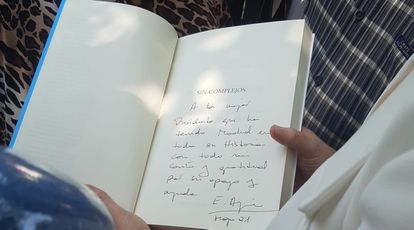 SIN COMPLEJOS
A la mejor
Presidenta que ha
tenido Madrid en
toda su Historia
con todo mi
cariño y gratitud
por su apoyo y
ayuda
E.